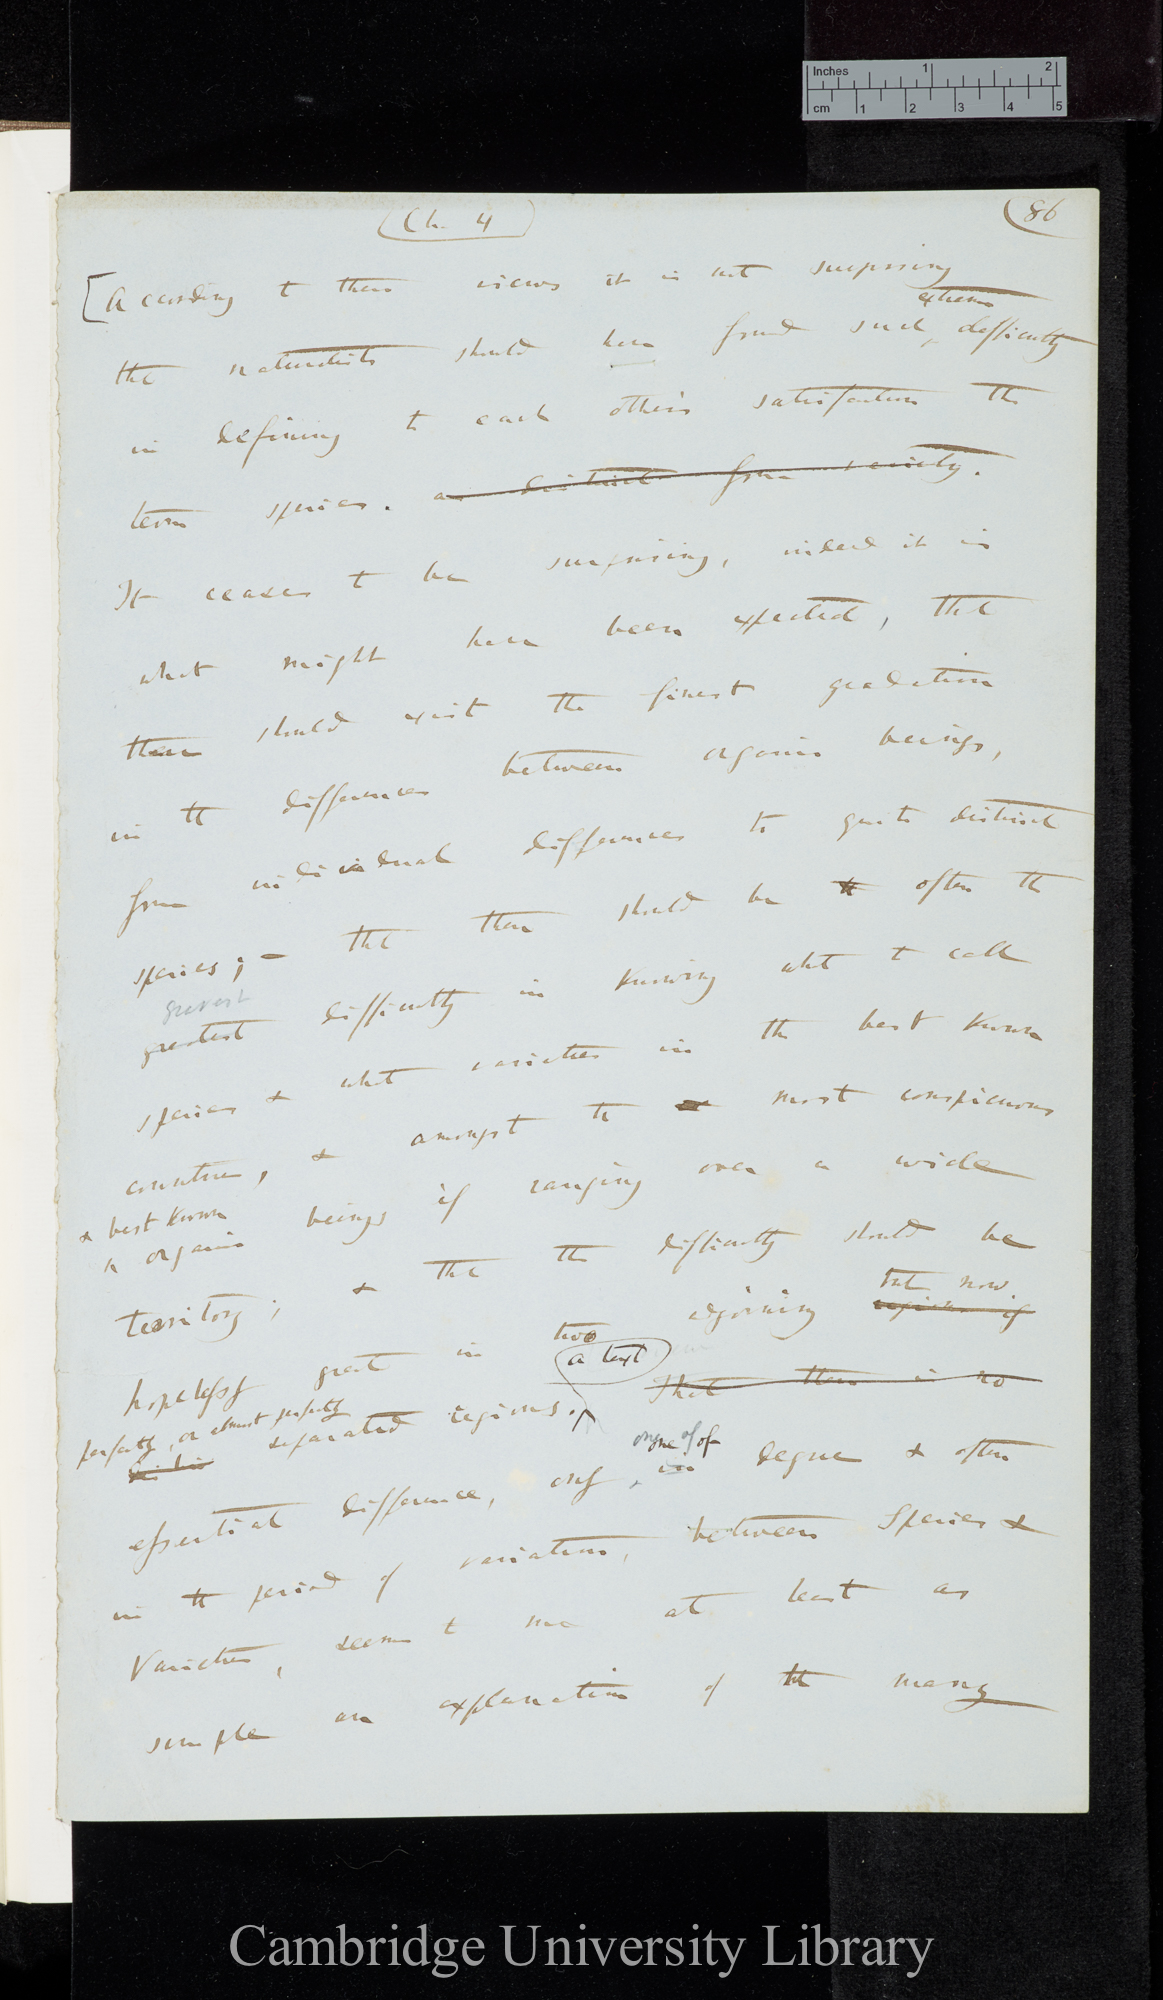 Inches 1 2
cm 1 2 3 4 5
Ch. 4
86
[According to these views it is not surprising
extreme
that naturalists should have found such difficulty
in defining to each others satisfaction the
term species. as distinct from variety.
It ceases to be surprising, indeed it is
what might have been expected, that
there should exist the finest gradation
in the differences between organic beings,
from individual differences to quite distinct
species; — that there should be often the
gravest
greatest difficulty in knowing what to call
species & what varieties in the best known
countries, & amongst the most conspicuous
& best known
organic beings if ranging over a wide
territory; & that the difficulty should be
but now
hopelessly great in two adjoining regions if
a text
perfectly, or almost perfectly
separated regions. That there is no
one of
essential difference, only in degree & often
in the period of variation, between Species &
Varieties, seems to me at least as
simple an explanation of the many
Cambridge University Library